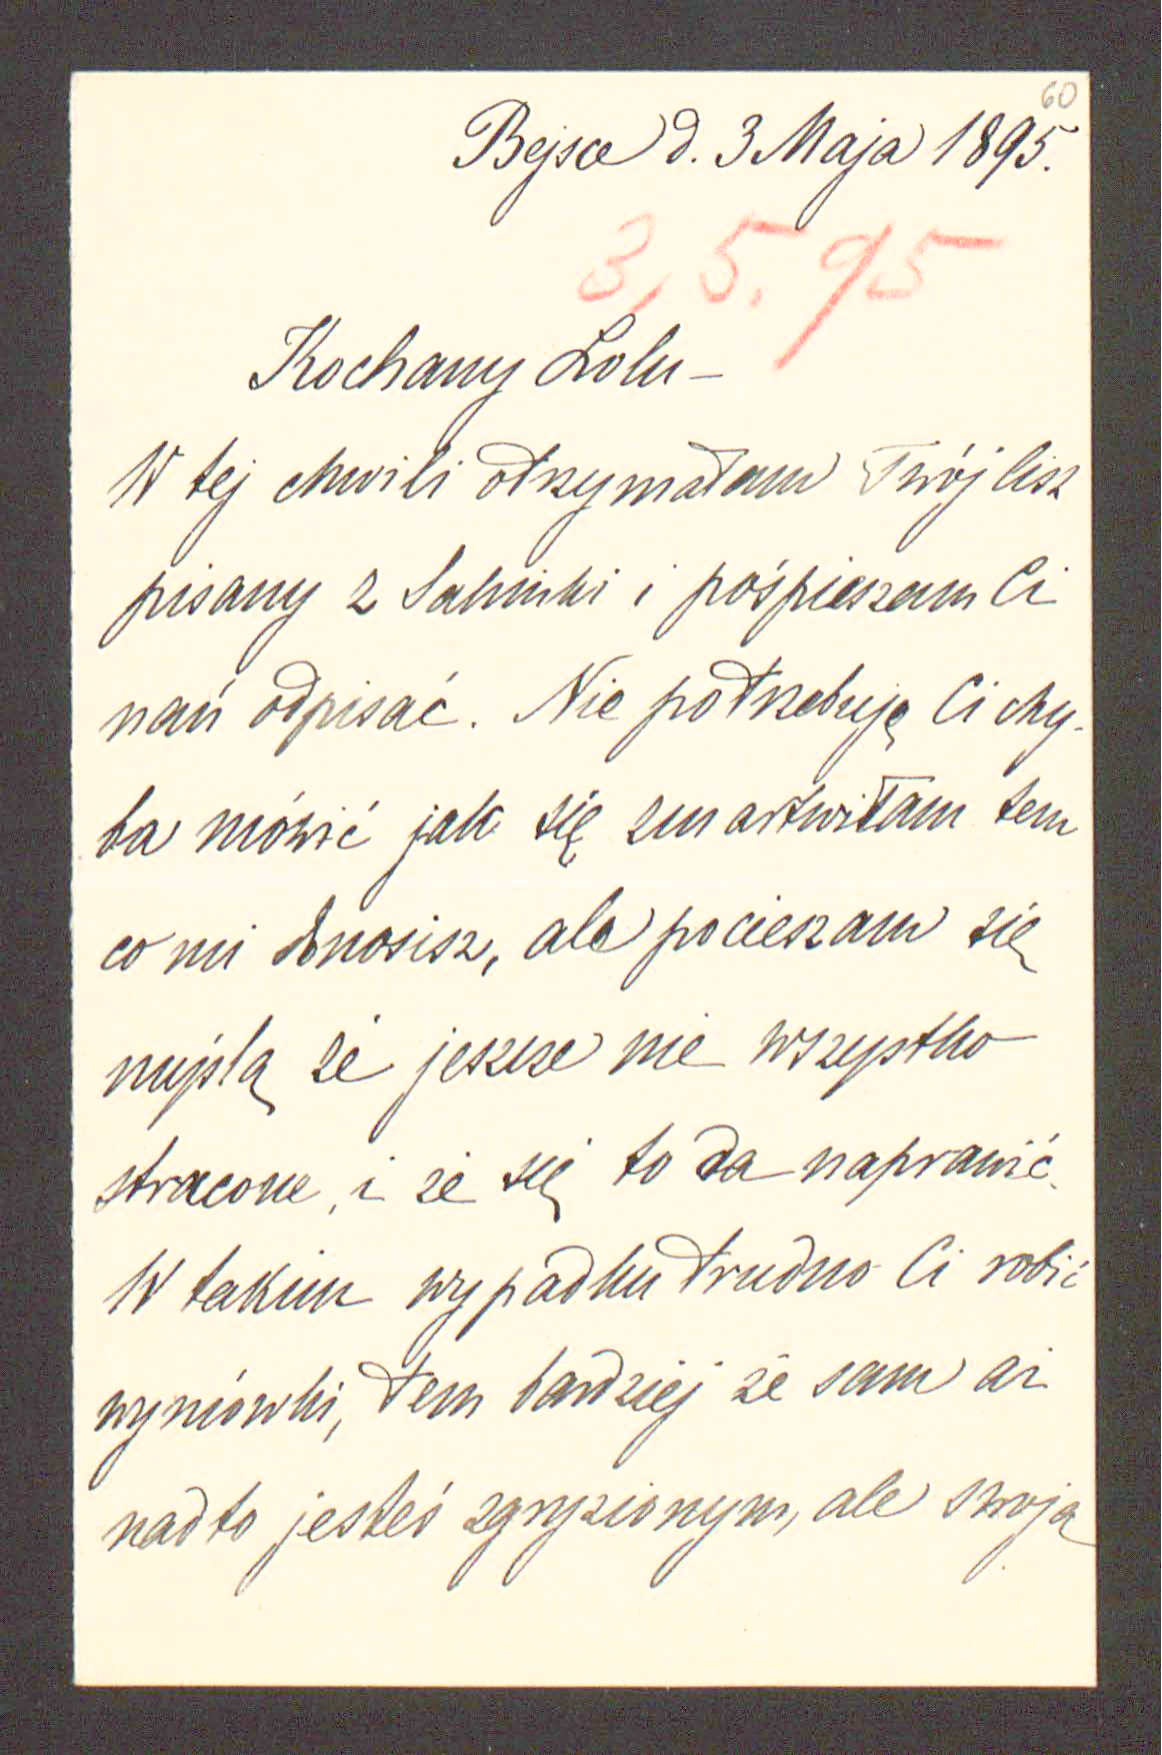 60
Bejsce d. 3 Maja 1895.
3,5.95
Kochany Lolu –
W tej chwili otrzymałam Twój list
pisany z i pośpieszam Ci
nań odpisać. Nie potrzebuję Ci chy-
ba mówić jak się zmartwiłam tem
co mi donosisz, ale pocieszam się
myślą że jeszcze nie wszystko
stracone, i że się to da naprawić.
W takim wypadku trudno Ci robić
wymówki, tem bardziej że sam aż
nadto jesteś zgryzionym, ale swoją